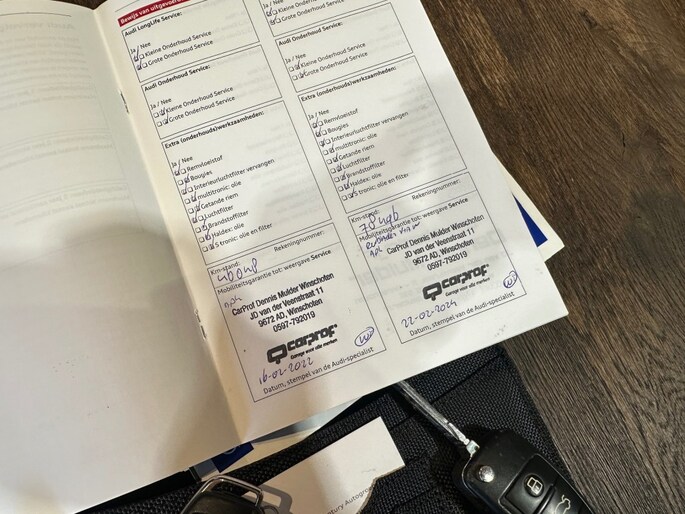 Bewijs van uitgevoerd
Audi LongLife Service:
Ja / Nee
Kleine Onderhoud Service
Grote Onderhoud Service
Audi Onderhoud Service:
Ja / Nee
Kleine Onderhoud Service
Grote Onderhoud Service
Extra (onderhouds)werkzaamheden:
Ja / Nee
Remvloeistof
Bougies
Interieurluchtfilter vervangen
multitronic: olie
Getande riem
Luchtfilter
Brandstoffilter
Haldex: olie
S tronic: olie en filter
Km-stand: Rekeningnummer:
40048
Mobiliteitsgarantie tot: weergave Service
CarProf Dennis Mulder Winschoten
JD van der Veenstraat 11
9672 AD, Winschoten
0597-792019
carprof
Garage voor alle merken
16-02-2022
Datum, stempel van de Audi-specialist
Kleine Onderhoud Service
Grote Onderhoud Service
Audi Onderhoud Service:
Ja / Nee
Kleine Onderhoud Service
Grote Onderhoud Service
Extra (onderhouds)werkzaamheden:
Ja / Nee
Remvloeistof
Bougies
Interieurluchtfilter vervangen
multitronic: olie
Getande riem
Luchtfilter
Brandstoffilter
Haldex: olie
S tronic: olie en filter
Km-stand: Rekeningnummer:
Mobiliteitsgarantie tot: weergave Service
CarProf Dennis Mulder Winschoten
JD van der Veenstraat 11
9672 AD, Winschoten
0597-792019
carprof
Garage voor alle merken
22-02-2024
Datum, stempel van de Audi-specialist